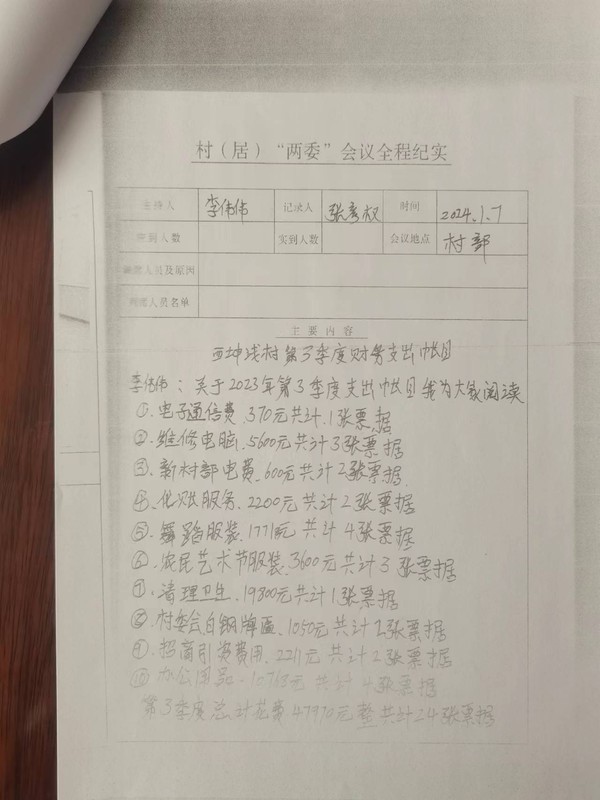 村（居）“两委”会议全程纪实
主持人 李伟伟 记录人 张彦权 时间 2024.1.7
应到人数 实到人数 会议地点 村部
缺席人员及原因
列席人员名单
主要内容
西坤浅村第3季度财务支出帐目
李伟伟：关于2023年第3季度支出帐目我为大家阅读
①.电子通信费.370元共计.1张票据
②.维修电脑.5600元共计3张票据
③.新村部电费.600元共计2张票据.
④.化账服务.2200元共计2张票据
⑤.舞蹈服装.1771元共计4张票据
⑥.农民艺术节服装.3600元共计3张票据
⑦.清理卫生.19800元共计1张票据
⑧.村委会白钢牌匾.1050元共计2张票据
⑨.招商引资费用.2211元共计2张票据
⑩办公用品-10768元共计4张票据
第3季度总计花费47970元整共计24张票据